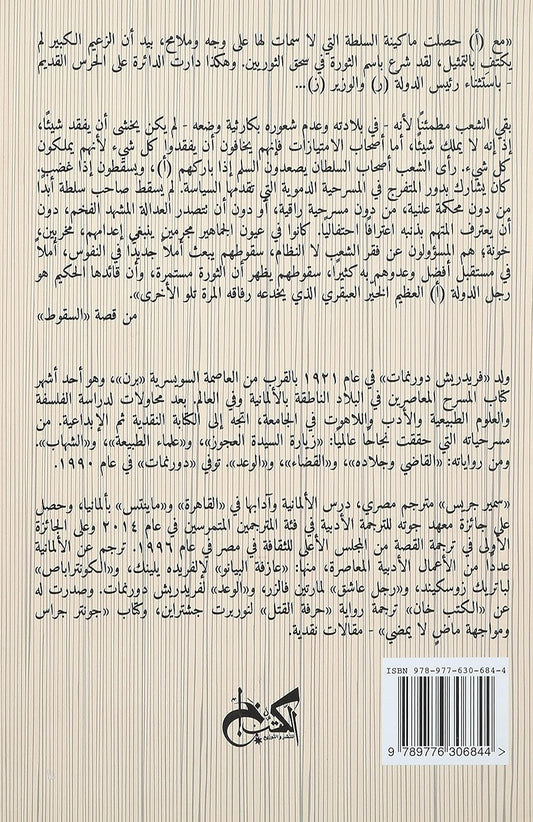 «مع (أ) حصلت ماكينة السلطة التي لا سمات لها على وجه وملامح، بيد أن الزعيم الكبير لم
يكتفِ بالتمثيل، لقد شرع باسم الثورة في سحق الثوريين. وهكذا دارت الدائرة على الحرس القديم
- باستثناء رئيس الدولة (ر) والوزير (ز)...
بقي الشعب مطمئنًا لأنه - في بلادته وعدم شعوره بكارثية وضعه - لم يكن يخشى أن يفقد شيئًا،
إذ إنه لا يملك شيئًا، أما أصحاب الامتيازات فإنهم يخافون أن يفقدوا كل شيء لأنهم يملكون
كل شيء. رأى الشعب أصحاب السلطان يصعدون السلم إذا باركهم (أ)، ويسقطون إذا غضب.
كان يشارك بدور المتفرج في المسرحية الدموية التي تقدمها السياسة. لم يسقط صاحب سلطة أبدًا
من دون محكمة علنية، من دون مسرحية راقية، أو دون أن تتصدر العدالة المشهد الفخم، دون
أن يعترف المتهم بذنبه اعترافًا احتفاليًّا. كانوا في عيون الجماهير مجرمين ينبغي إعدامهم، مخربين،
خونة؛ هم المسؤولون عن فقر الشعب لا النظام، سقوطهم يبعث أملاً جديدًا في النفوس، أملاً
في مستقبل أفضل وعدوهم به كثيرًا، سقوطهم يظهر أن الثورة مستمرة، وأن قائدها الحكيم هو
رجل الدولة (أ) العظيم الخيّر العبقري الذي يخدعه رفاقه المرة تلو الأخرى».
من قصة «السقوط»
ولد «فريدريش دورنمات» في عام ١٩٢١ بالقرب من العاصمة السويسرية «برن»، وهو أحد أشهر
كتاب المسرح المعاصرين في البلاد الناطقة بالألمانية وفي العالم. بعد محاولات لدراسة الفلسفة
والعلوم الطبيعية والأدب واللاهوت في الجامعة، اتجه إلى الكتابة النقدية ثم الإبداعية. من
مسرحياته التي حققت نجاحًا عالميًّا: «زيارة السيدة العجوز»، و«علماء الطبيعة»، و«الشهاب».
ومن رواياته: «القاضي وجلاده»، و«القضاء»، و«الوعد». توفي «دورنمات» في عام ١٩٩٠.
«سمير جريس» مترجم مصري، درس الألمانية وآدابها في «القاهرة» و«ماينتس» بألمانيا، وحصل
على جائزة معهد جوته للترجمة الأدبية في فئة المترجمين المتمرسين في عام ٢٠١٤ وعلى الجائزة
الأولى في ترجمة القصة من المجلس الأعلى للثقافة في مصر في عام ١٩٩٦. ترجم عن الألمانية
عددًا من الأعمال الأدبية المعاصرة، منها: «عازفة البيانو» لإلفريده يلينك، و«الكونتراباص»
لباتريك زوسكيند، و«رجل عاشق» لمارتين فالزر، و«الوعد» لفريدريش دورنمات. وصدرت له
عن «الكتب خان» ترجمة رواية «حرفة القتل» لنوربرت جشتراين، وكتاب «جونتر جراس
ومواجهة ماضٍ لا يمضي» - مقالات نقدية.
ISBN 978-977-630-684-4
9 789776 306844 >
الكتب خان
للنشر والتوزيع